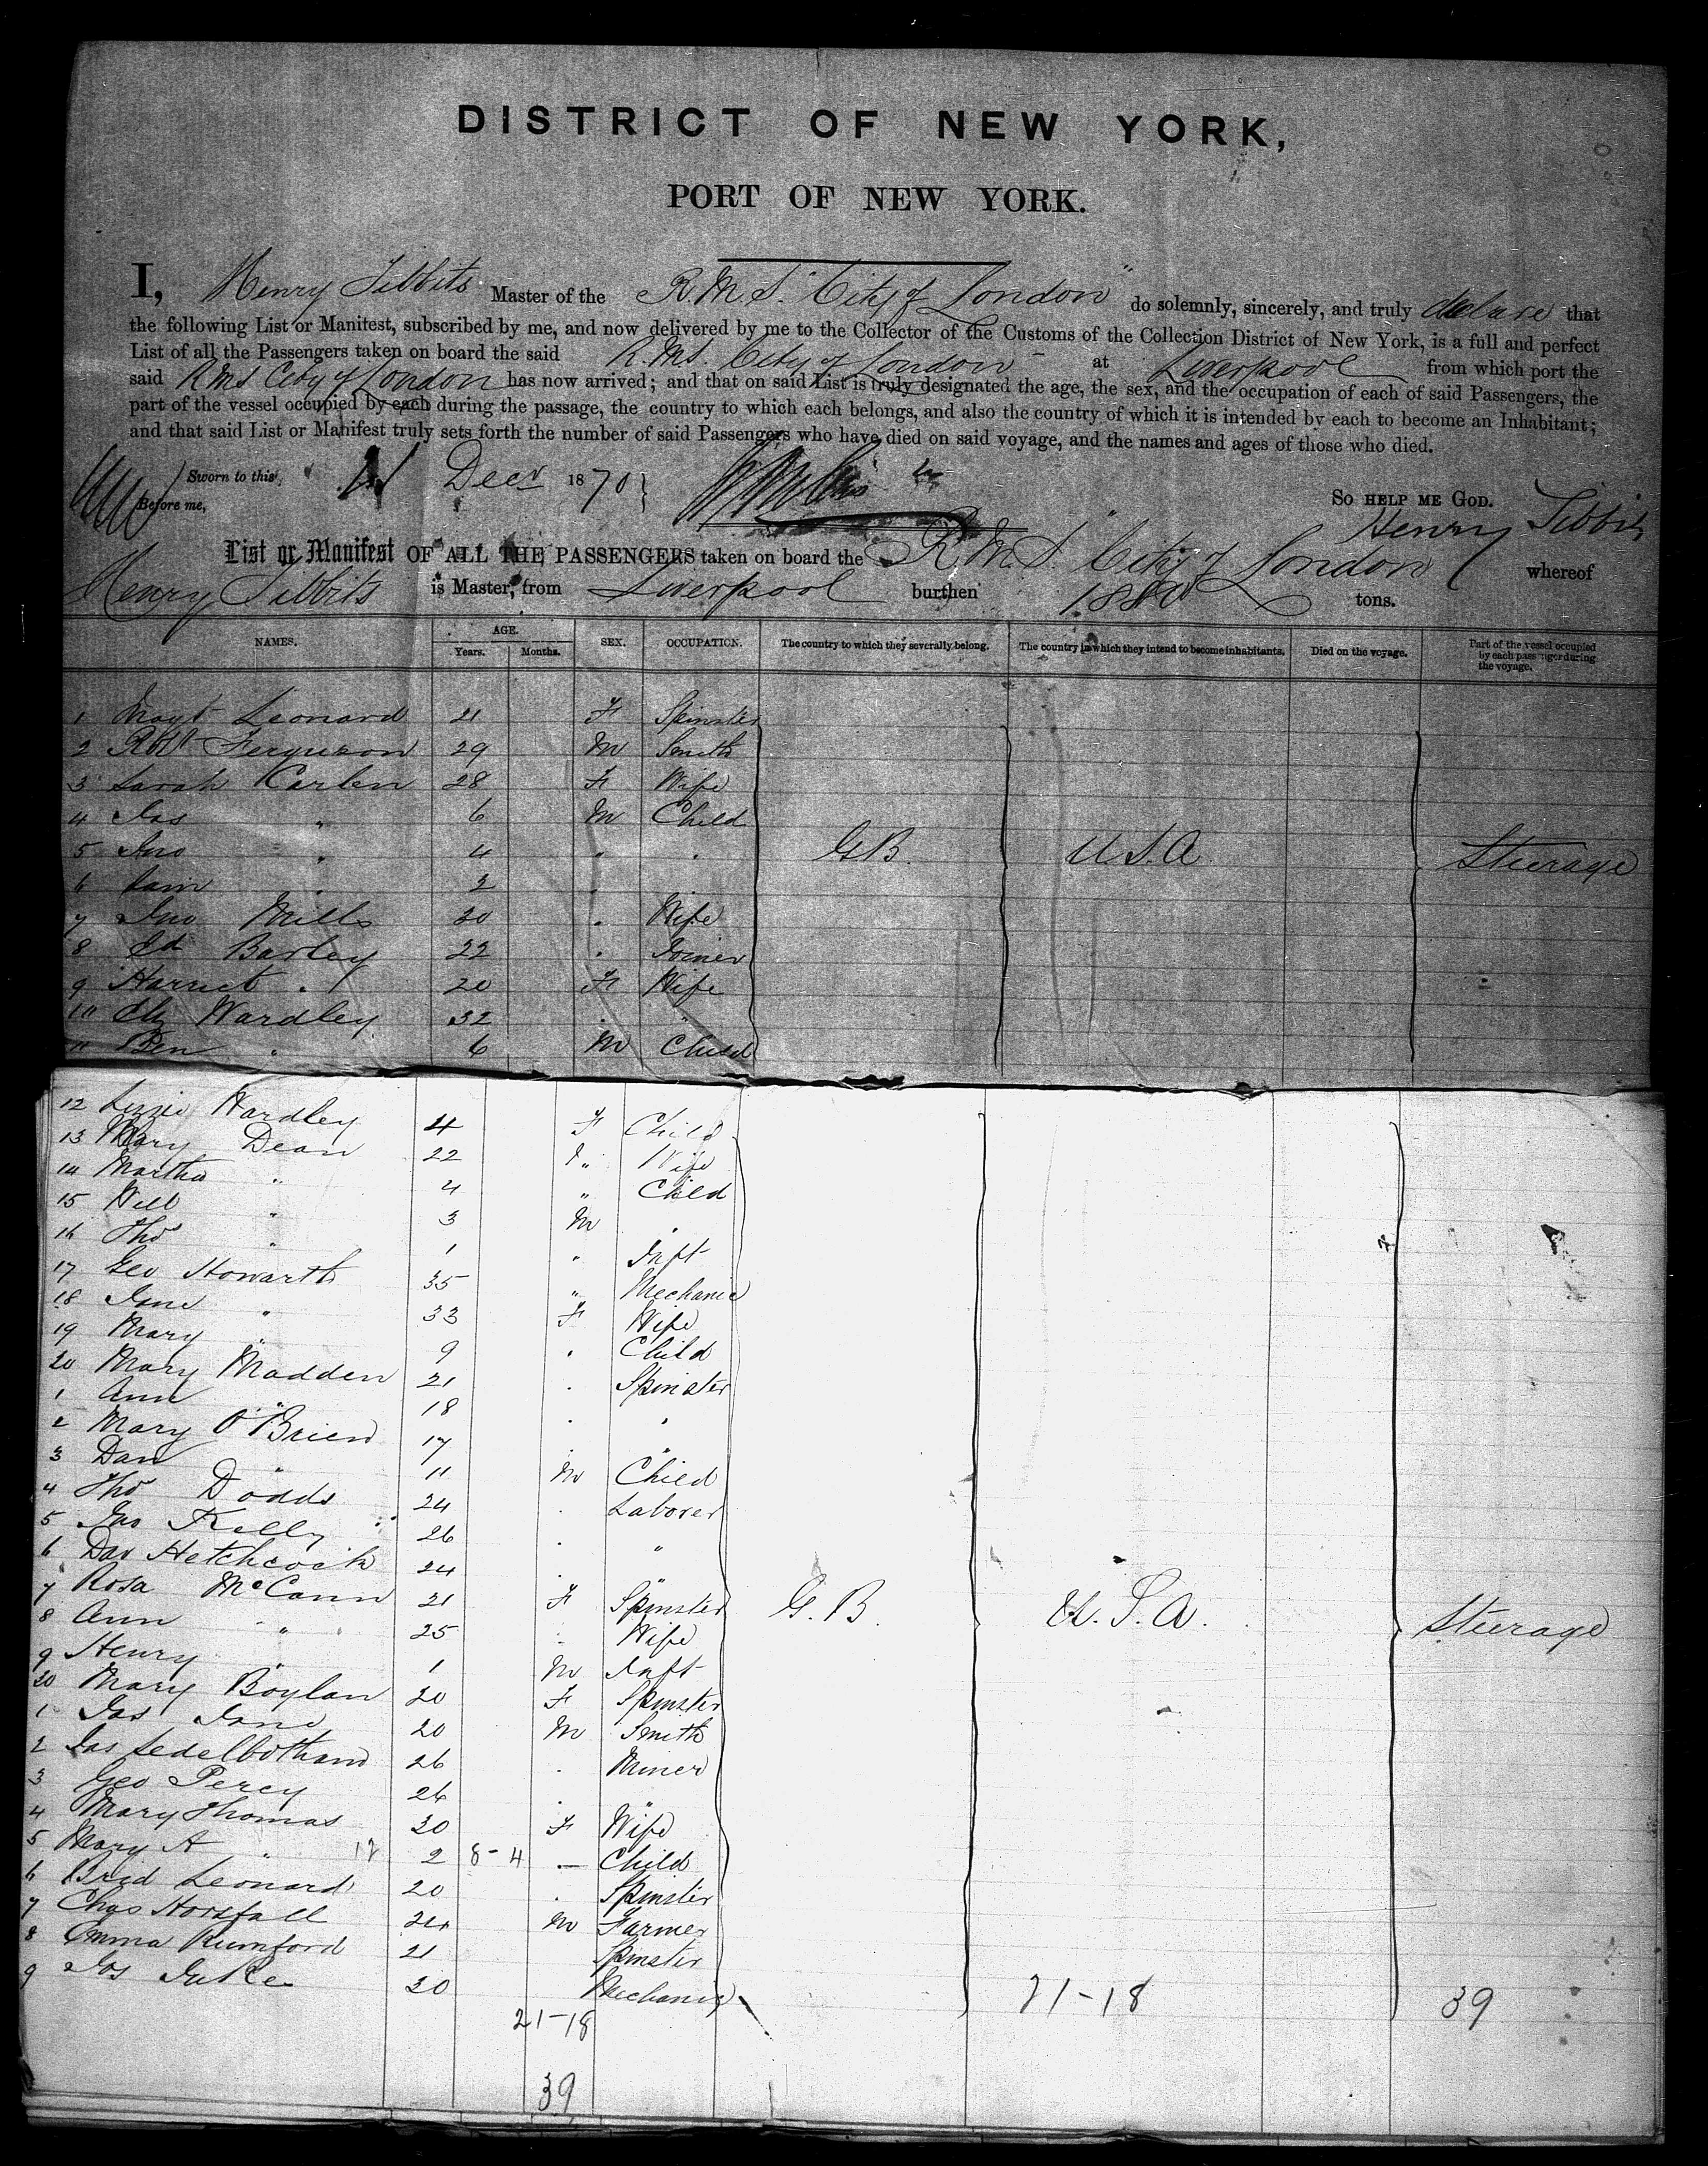 DISTRICT OF NEW YORK,
PORT OF NEW YORK.
I, Henry Tibbits Master of the R.M.S. "City of London" do solemnly, sincerely, and truly declare that
the following List or Manifest, subscribed by me, and now delivered by me to the Collector of the Customs of the Collection District of New York, is a full and perfect
List of all the Passengers taken on board the said R.M.S. City of London at Liverpool from which port the
said RMS City of London has now arrived; and that on said List is truly designated the age, the sex, and the occupation of each of said Passengers, the
part of the vessel occupied by each during the passage, the country to which each belongs, and also the country of which it is intended by each to become an Inhabitant;
and that said List or Manifest truly sets forth the number of said Passengers who have died on said voyage, and the names and ages of those who died.
Sworn to this Decr 1870 }
Before me,
SO HELP ME GOD.
Henry Tibbits
List or Manifest OF ALL THE PASSENGERS taken on board the R.M.S. City of London whereof
Henry Tibbits is Master, from Liverpool burthen tons.
NAMES. AGE. Years. Months. SEX. OCCUPATION. The country to which they severally belong. The country in which they intend to become inhabitants. Died on the voyage. Part of the vessel occupied by each passenger during the voyage.
1 Margt Leonard 21 F Spinster
2 Robt Ferguson 29 M Smith
3 Sarah Carlen 28 F Wife
4 Jas " 6 M Child
5 Jno " 4 " " G.B. U.S.A Steerage
6 Sam " 2 "
7 Jno Mills 30 " Wife
8 Ed Barley 22 " Joiner
9 Harriet " 20 F Wife
10 Eliz Wardley 32 " "
11 Ben " 6 M Child
12 Lizzie Wardley 4 F Child
13 Mary Dean 22 " Wife
14 Martha " 4 " Child
15 Will " 3 M "
16 Tho " 1 " Inft
17 Geo Howarth 35 " Mechanic
18 Jane " 33 F Wife
19 Mary " 9 " Child
20 Mary Madden 21 " Spinster
1 Ann " 18 " "
2 Mary O'Brien 17 "
3 Dan " 11 M Child
4 Tho Dodds 24 " Laborer
5 Jno Kelly 26 " "
6 Dav Hetchcock 24 " "
7 Rosa McCann 21 F Spinster G.B. U.S.A. Steerage
8 Ann " 25 " Wife
9 Henry " 1 M Inft
30 Mary Boylan 20 F Spinster
1 Jas Jane 20 M Smith
2 Jas Sedelbotham 26 " Miner
3 Geo Percy 26 " "
4 Mary Thomas 30 F Wife
5 Mary A " 2 8-4 — Child
6 Brid Leonard 20 " Spinster
7 Chas Horsfall 24 M Farmer
8 Emma Rumford 21 Spinster
9 Jos 20 Mechanic
21-18 21-18 39
39